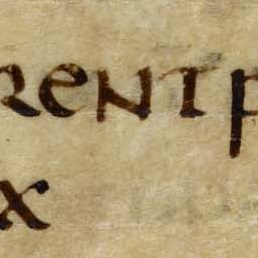 rentp
x